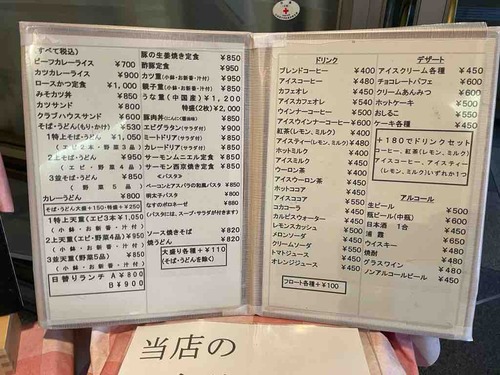 (すべて税込)
ビーフカレーライス ¥700
カツカレーライス ¥900
ロースかつ定食 ¥1,000
みそカツ丼 ¥850
カツサンド ¥800
クラブハウスサンド ¥600
そば・うどん(もり・かけ) ¥530
1特上そば・うどん ¥1,050
(エビ2本・野菜3品)
2上そば・うどん ¥950
(エビ・野菜4品)
3並そば・うどん ¥850
(野菜5品)
カレーうどん ¥800
そば・うどん大盛+150・特盛+250
1特上天重(エビ3本) ¥1,050
(小鉢・お新香・汁付)
2上天重(エビ・野菜4品) ¥950
(小鉢・お新香・汁付)
3並天重(野菜5品) ¥850
(小鉢・お新香・汁付)
日替りランチ A ¥800
B ¥900
豚の生姜焼き定食 ¥850
酢豚定食 ¥950
カツ重(小鉢・お新香・汁付) ¥950
親子重(小鉢・お新香・汁付) ¥850
うな重(中国産) ¥1,200
特盛(2枚) ¥2,000
豚肉丼(にんにく醤油味) ¥850
エビグラタン(サラダ付) ¥900
ミートドリア(サラダ付) ¥850
カレードリア(サラダ付) ¥850
サーモンムニエル定食 ¥850
サーモン西京焼き定食 ¥850
<パスタ>
ベーコンとアスパラの和風パスタ ¥850
明太子パスタ ¥850
なすのボロネーゼ ¥850
(パスタには、スープ・サラダが付きます)
ソース焼きそば ¥820
焼うどん ¥820
大盛り各種+110
(そば・うどんを除く)
ドリンク
ブレンドコーヒー ¥400
アイスコーヒー ¥480
カフェオレ ¥450
アイスカフェオレ ¥540
ウインナーコーヒー ¥500
アイスウインナーコーヒー ¥600
紅茶(レモン、ミルク) ¥400
アイスティー(レモン、ミルク) ¥480
ホットミルク ¥400
アイスミルク ¥450
ウーロン茶 ¥400
アイスウーロン茶 ¥450
ホットココア ¥450
アイスココア ¥550
コカコーラ ¥450
カルピスウォーター ¥450
レモンスカッシュ ¥500
メロンソーダ ¥450
クリームソーダ ¥550
トマトジュース ¥450
オレンジジュース ¥450
フロート各種+¥100
デザート
アイスクリーム各種 ¥450
チョコレートパフェ ¥600
クリームあんみつ ¥600
ホットケーキ ¥500
おしるこ ¥550
ケーキ各種 ¥450
+180でドリンクセット
(コーヒー、紅茶(レモン、ミルク)
アイスコーヒー、アイスティー
(レモン、ミルク)いずれか1つ
アルコール
生ビール ¥500
瓶ビール(中瓶) ¥600
日本酒 1合 ¥450
浦霞 ¥650
ウイスキー ¥650
焼酎 ¥480
グラスワイン ¥450
ノンアルコールビール ¥450
当店の